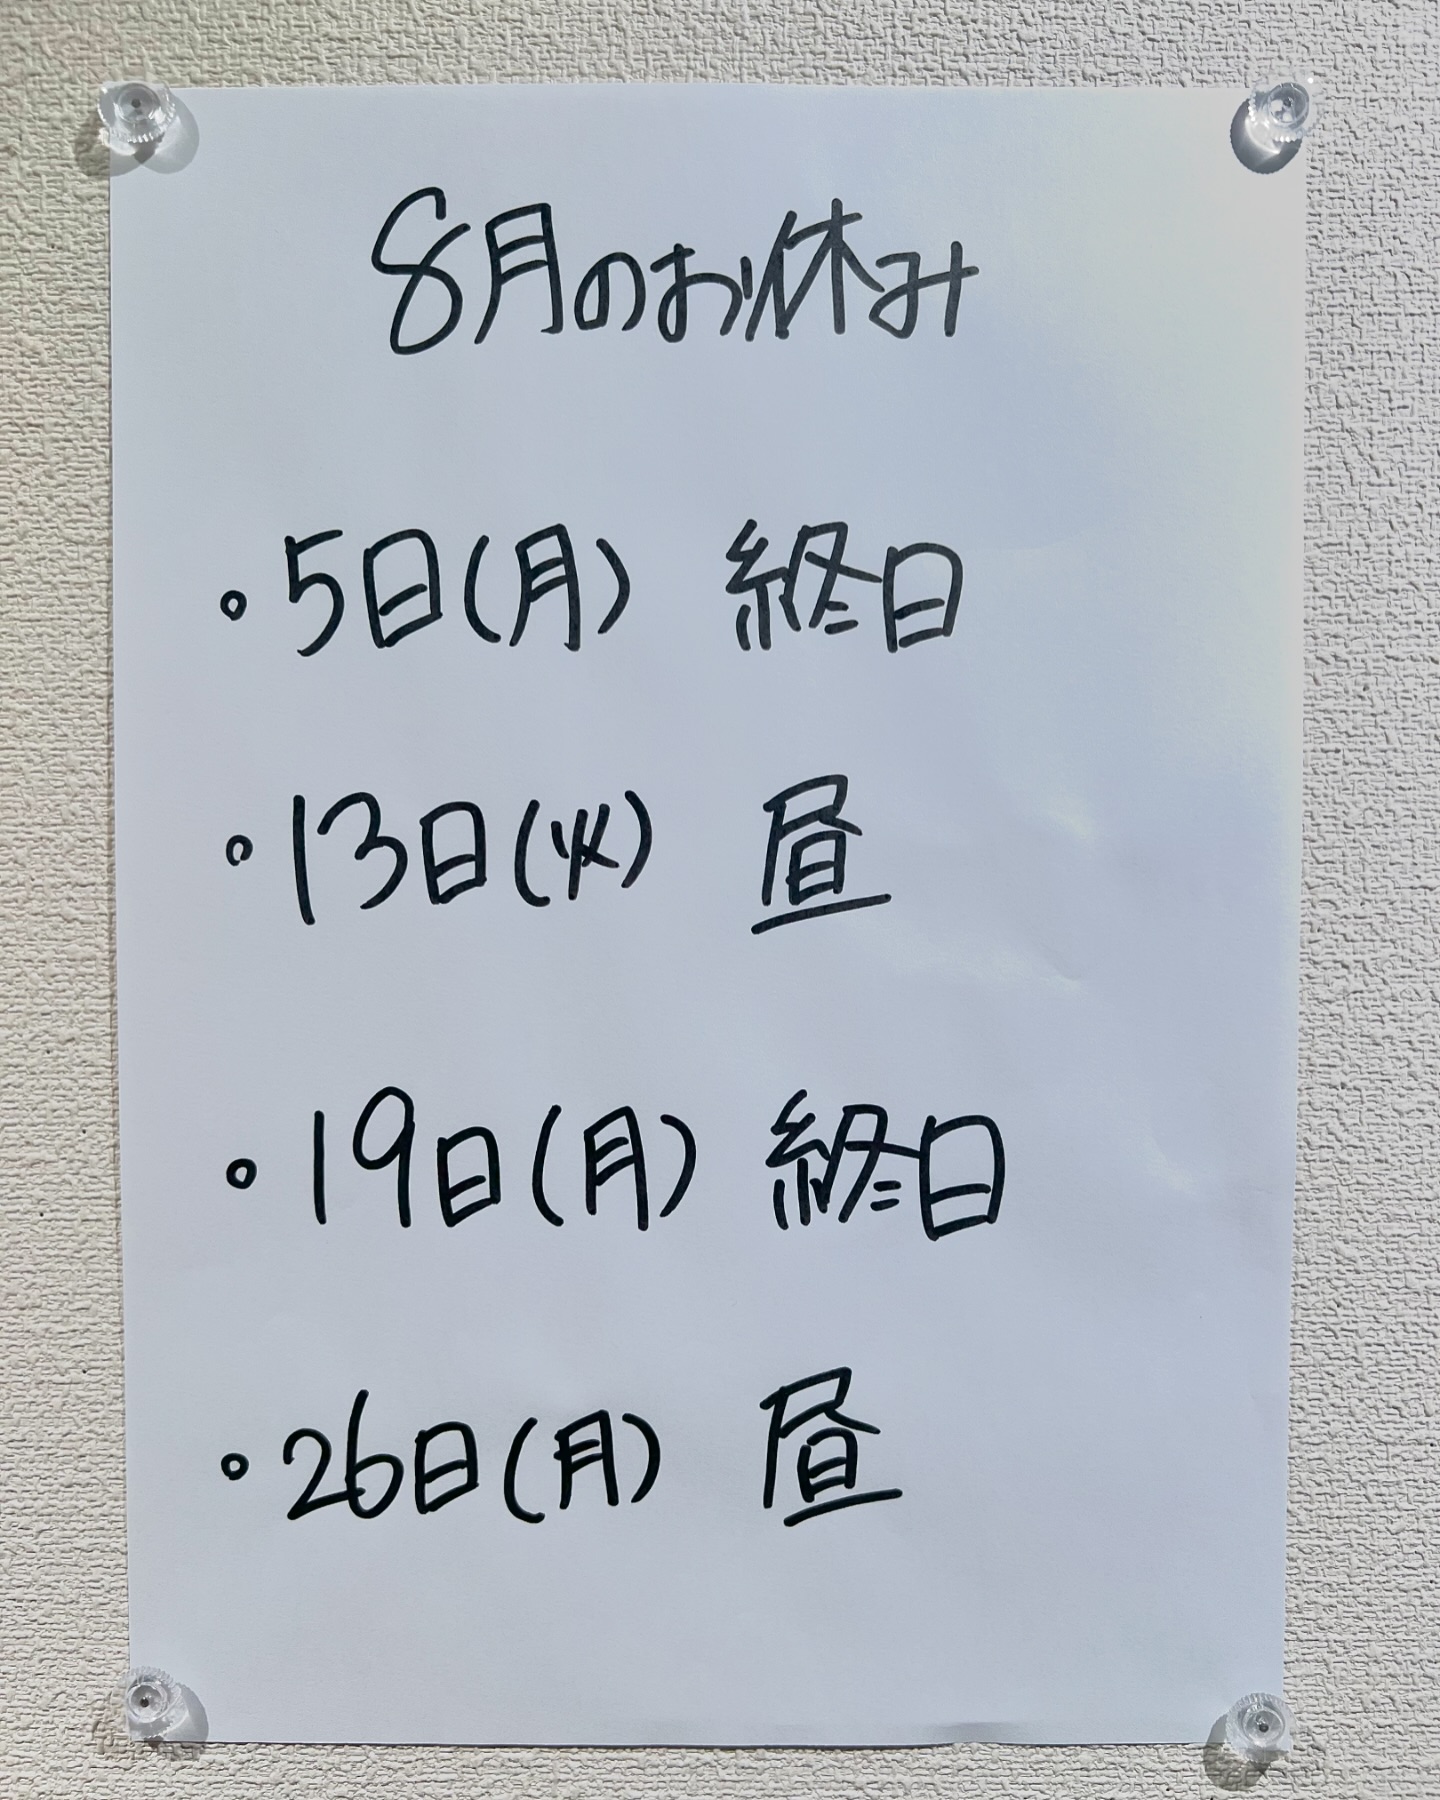 8月のお休み
・5日(月) 終日
・13日(火) 昼
・19日(月) 終日
・26日(月) 昼